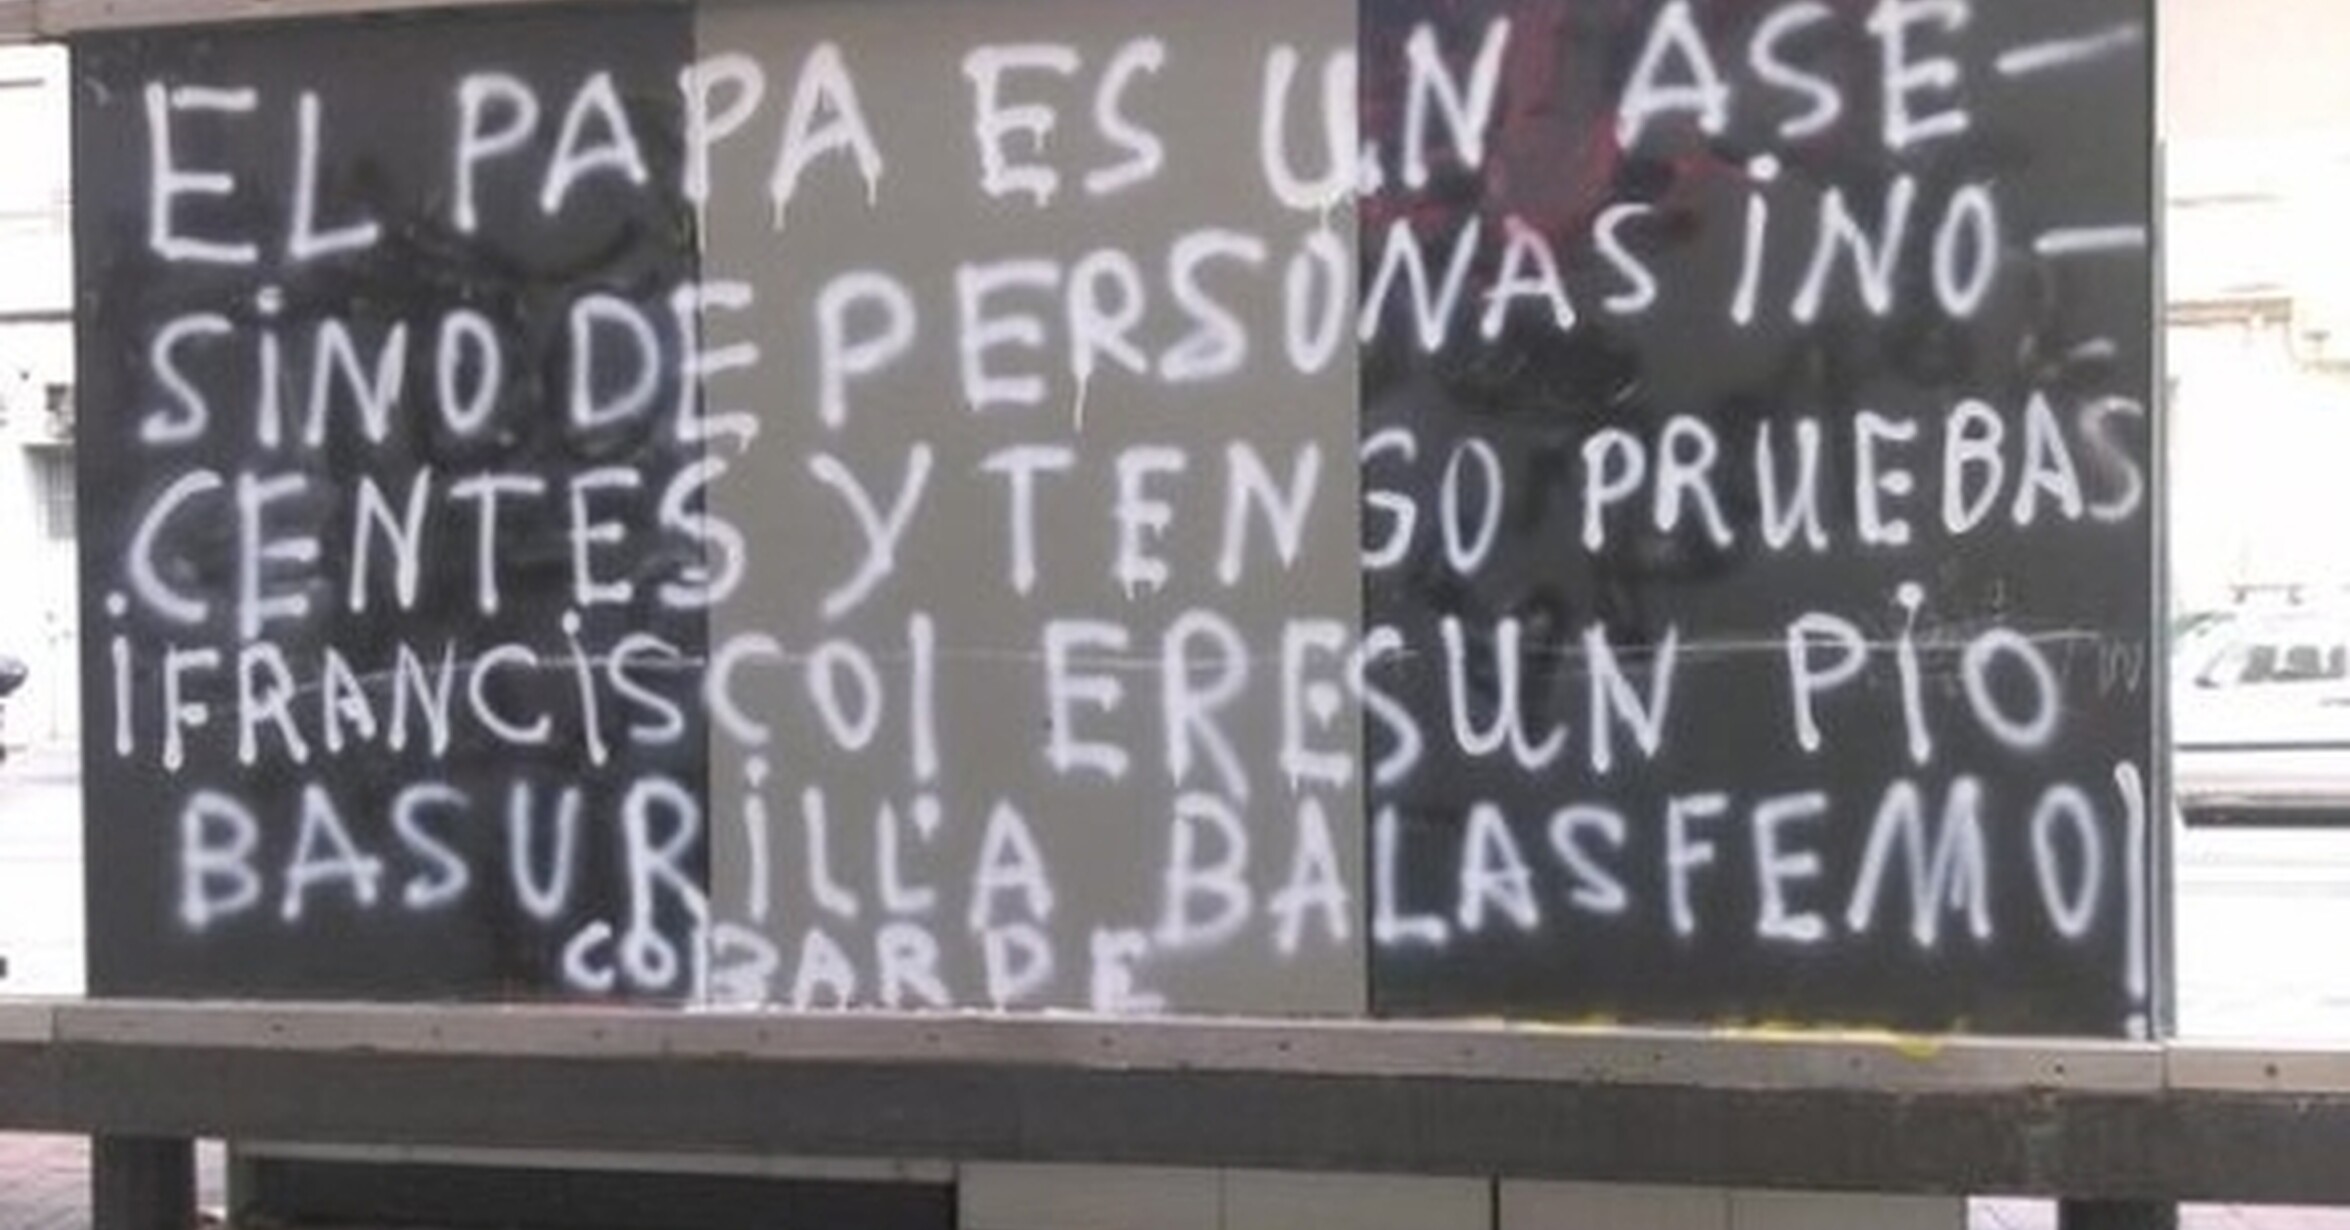 EL PAPA ES UN ASE-
SiNO DE PERSONAS iNO-
CENTES Y TENGO PRUEBAS
¡FRANCiSCO! ERES UN PiO
BASURiLLA BALASFEMO!
COBARDE